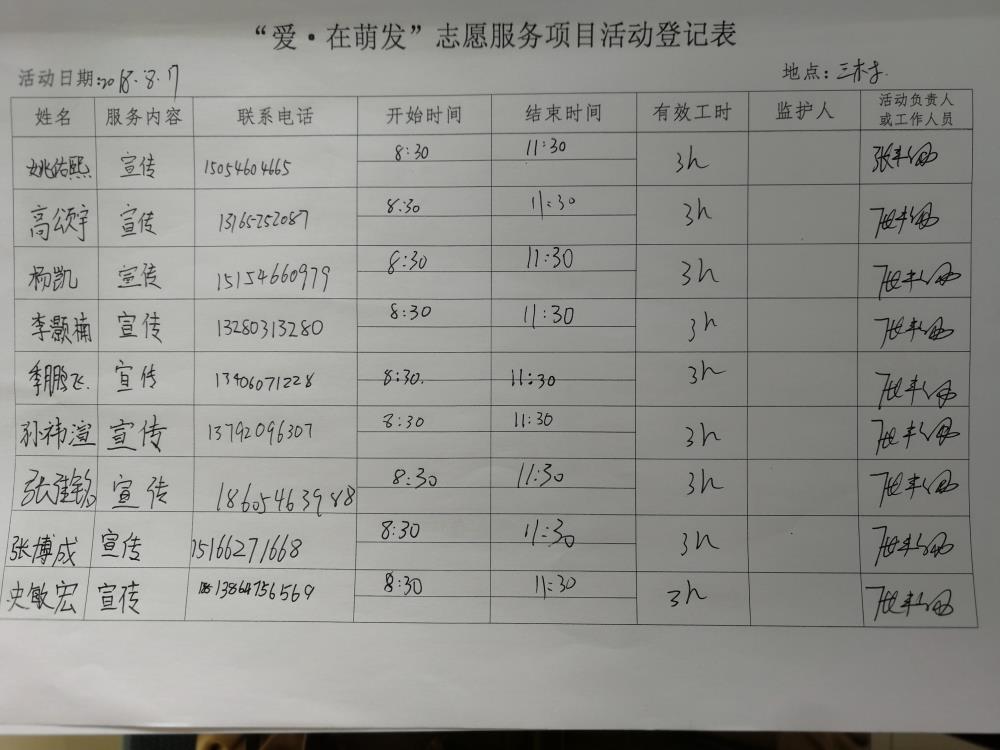 “爱·在萌发”志愿服务项目活动登记表
活动日期:2018.8.7 地点：
姓名 服务内容 联系电话 开始时间 结束时间 有效工时 监护人 活动负责人或工作人员
姚佑熙 宣传 15054604665 8:30 11:30 3h
高公颂宇 宣传 13165252087 8:30 11:30 3h
杨凯 宣传 15154660979 8:30 11:30 3h
李颢楠 宣传 13280313280 8:30 11:30 3h
季鹏飞 宣传 13406071228 8:30 11:30 3h
孙祎渲 宣传 13792096307 8:30 11:30 3h
张雅铭 宣传 18605463988 8:30 11:30 3h
张博成 宣传 15166271668 8:30 11:30 3h
史敏宏 宣传 13864756569 8:30 11:30 3h